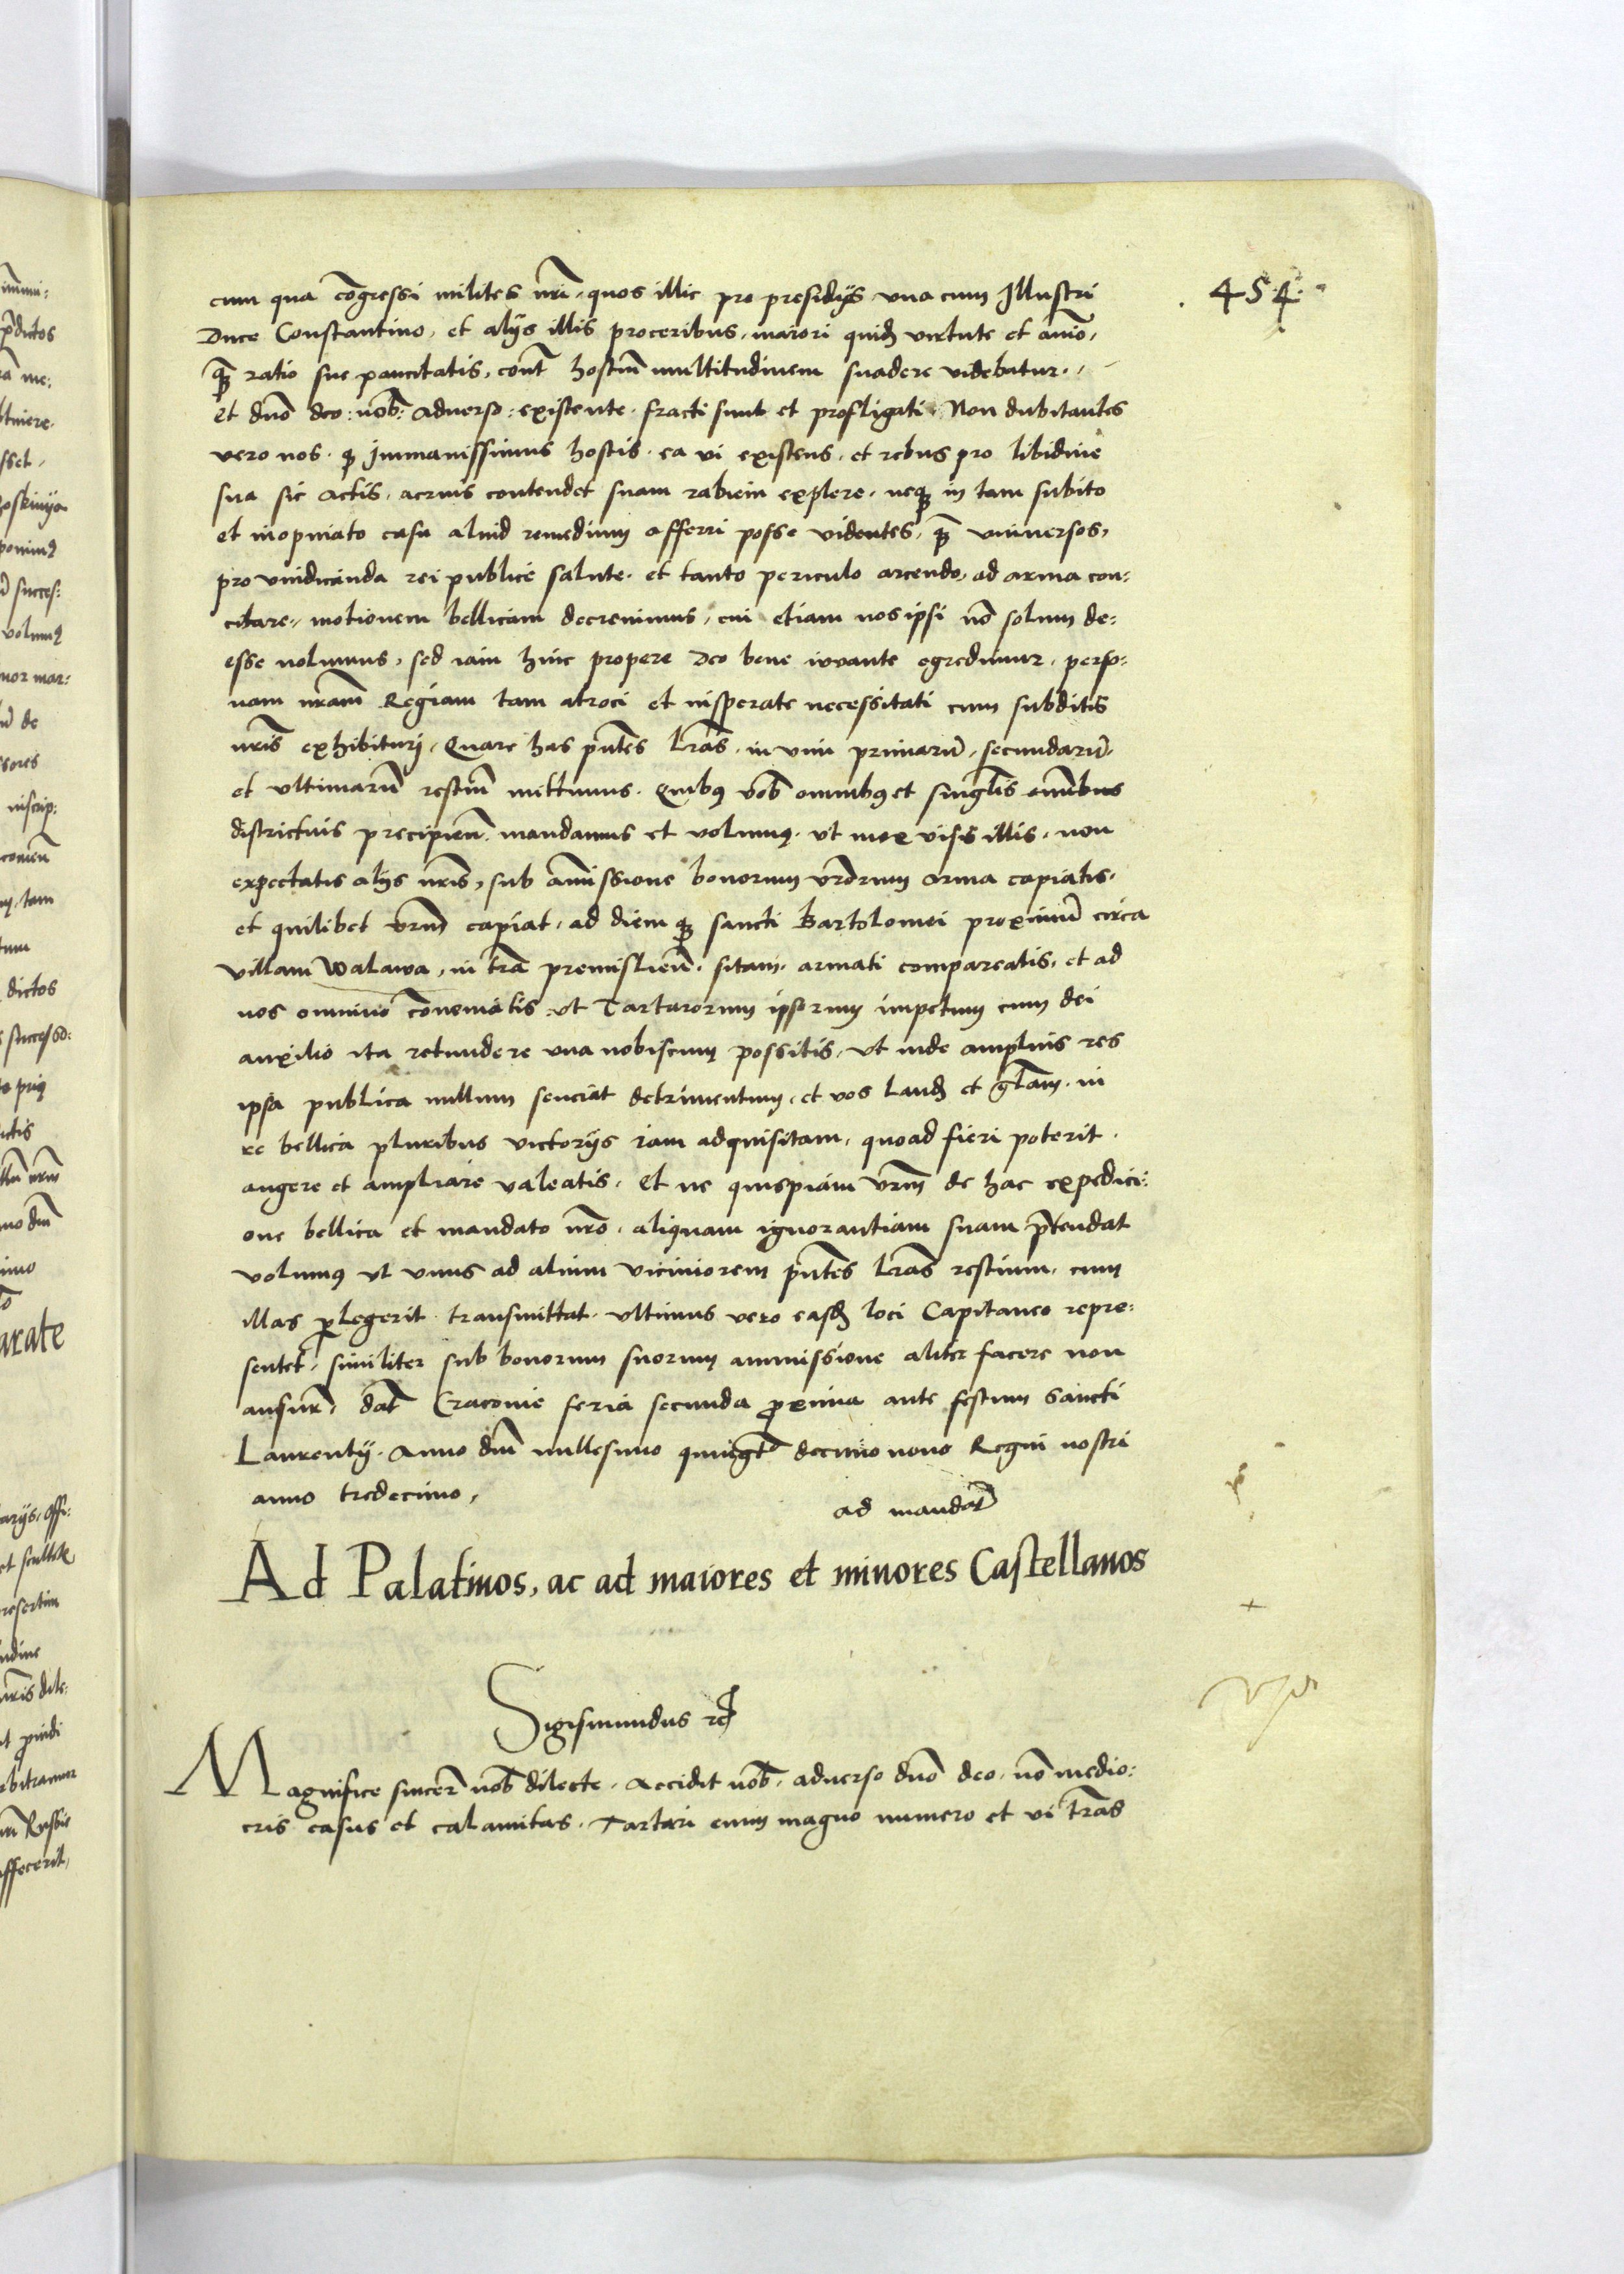 454
cum qua cōgressi milites nr̄i, quos illic pro presidijs vna cum Illustri
Duce Constantino, et alijs illis proceribus, maiori quid virtute et ai̅o,
q̄ꝫ ratio sue paucitatis, cont̄ hostiū multitudinem suadere videbatur.
et dn̄o deo: nob̄: adverso: existente, fracti sunt et profligati. Non dubitantes
vero nos, qꝫ immanissimus hostis, ea vi existens, et rebus pro libidine
sua sic actis, acrius contendet suam rabiem explere, neqꝫ in tam subito
et inopinato casu aliud remedium afferri posse videntes, q̄ꝫ vniversos,
pro vindicanda rei publice salute, et tanto periculo arcendo, ad arma con:
citare, motionem bellicam decrevimus, cui etiam nos ipsi nō solum de:
esse nolumus, sed iam hinc propere Deo bene iuvante egredimur, perso:
nam nr̄am Regiam tam atroci et insperate necessitati cum subditis
nr̄is exhibituri, Quare has pn̄tes lr̄as, in vim primarū, secundarū,
et vltimarū restiū mittimus. Quibꝯ vob̄ omnibꝯ et singl̄is omnibus
districtius precipien̄, mandamus et volumꝯ, vt mox visis illis, non
expectatis alijs nr̄is, sub amissione bonorum vr̄orum arma capiatis,
et quilibet vr̄m capiat, ad diem qꝫ sancti Bartolomei proximū circa
villam Walawa, in tr̄a premislien̄, sitam, armati compareatis, et ad
nos omnino cōveniatis, vt Tartarorum ipsorum impetum cum dei
auxilio ita retundere vna nobiscum possitis, vt inde amplius res
ipsa publica nullum senciat detrimentum, et vos laud et gl̄am, in
re bellica pluribus victorijs iam adquisitam, quoad fieri poterit,
augere et ampliare valeatis. Et ne quispiam vr̄m de hac expedici:
one bellica et mandato nr̄o, aliquam ignorantiam suam p̄tendat
volumꝯ vt vnus ad alium viciniorem pn̄tes lr̄as restium, cum
illas ꝑlegerit transmittat, vltimus vero easd loci Capitaneo repre:
sentet, similiter sub bonorum suorum ammissione aliter facere non
ausur̄, dat̄ Cracovie feria secunda ꝓxima ante festum Sancti
Laurentij, Anno dn̄i millesimo quingt̄o decimo nono Regni nostri
anno tredecimo,
ad mandat̄
Ad Palatinos, ac ad maiores et minores Castellanos
Sigismundus rē
Magnifice sincer̄ nob̄ dilecte, Accidit nob̄, adverso dn̄o deo, nō medio:
cris casus et calamitas. Tartari enim magno numero et vi tr̄as